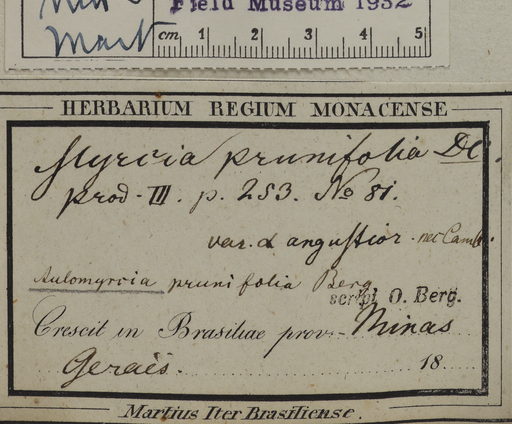 Field Museum 1932
Mart
cm 1 2 3 4 5
HERBARIUM REGIUM MONACENSE
Myrcia prunifolia DC.
prod. III. p. 253. No 81.
var. α angustior. nec Camb.
Aulomyrcia prunifolia Berg
script. O. Berg.
Crescit in Brasiliae prov. Minas
Geraës. 18
Martius Iter Brasiliense.